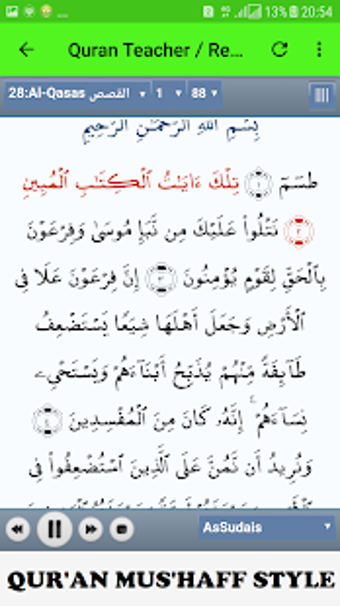 13% 20:54
Quran Teacher / Re...
28:Al-Qasas القصص 1 88
بِسْمِ ٱللَّهِ ٱلرَّحْمَٰنِ ٱلرَّحِيمِ
طسٓمٓ ١ تِلْكَ ءَايَٰتُ ٱلْكِتَٰبِ ٱلْمُبِينِ
٢ نَتْلُوا۟ عَلَيْكَ مِن نَّبَإِ مُوسَىٰ وَفِرْعَوْنَ
بِٱلْحَقِّ لِقَوْمٍ يُؤْمِنُونَ ٣ إِنَّ فِرْعَوْنَ عَلَا فِى
ٱلْأَرْضِ وَجَعَلَ أَهْلَهَا شِيَعًا يَسْتَضْعِفُ
طَآئِفَةً مِّنْهُمْ يُذَبِّحُ أَبْنَآءَهُمْ وَيَسْتَحْىِۦ
نِسَآءَهُمْ ۚ إِنَّهُۥ كَانَ مِنَ ٱلْمُفْسِدِينَ ٤
وَنُرِيدُ أَن نَّمُنَّ عَلَى ٱلَّذِينَ ٱسْتُضْعِفُوا۟ فِى
AsSudais
QUR'AN MUS'HAFF STYLE